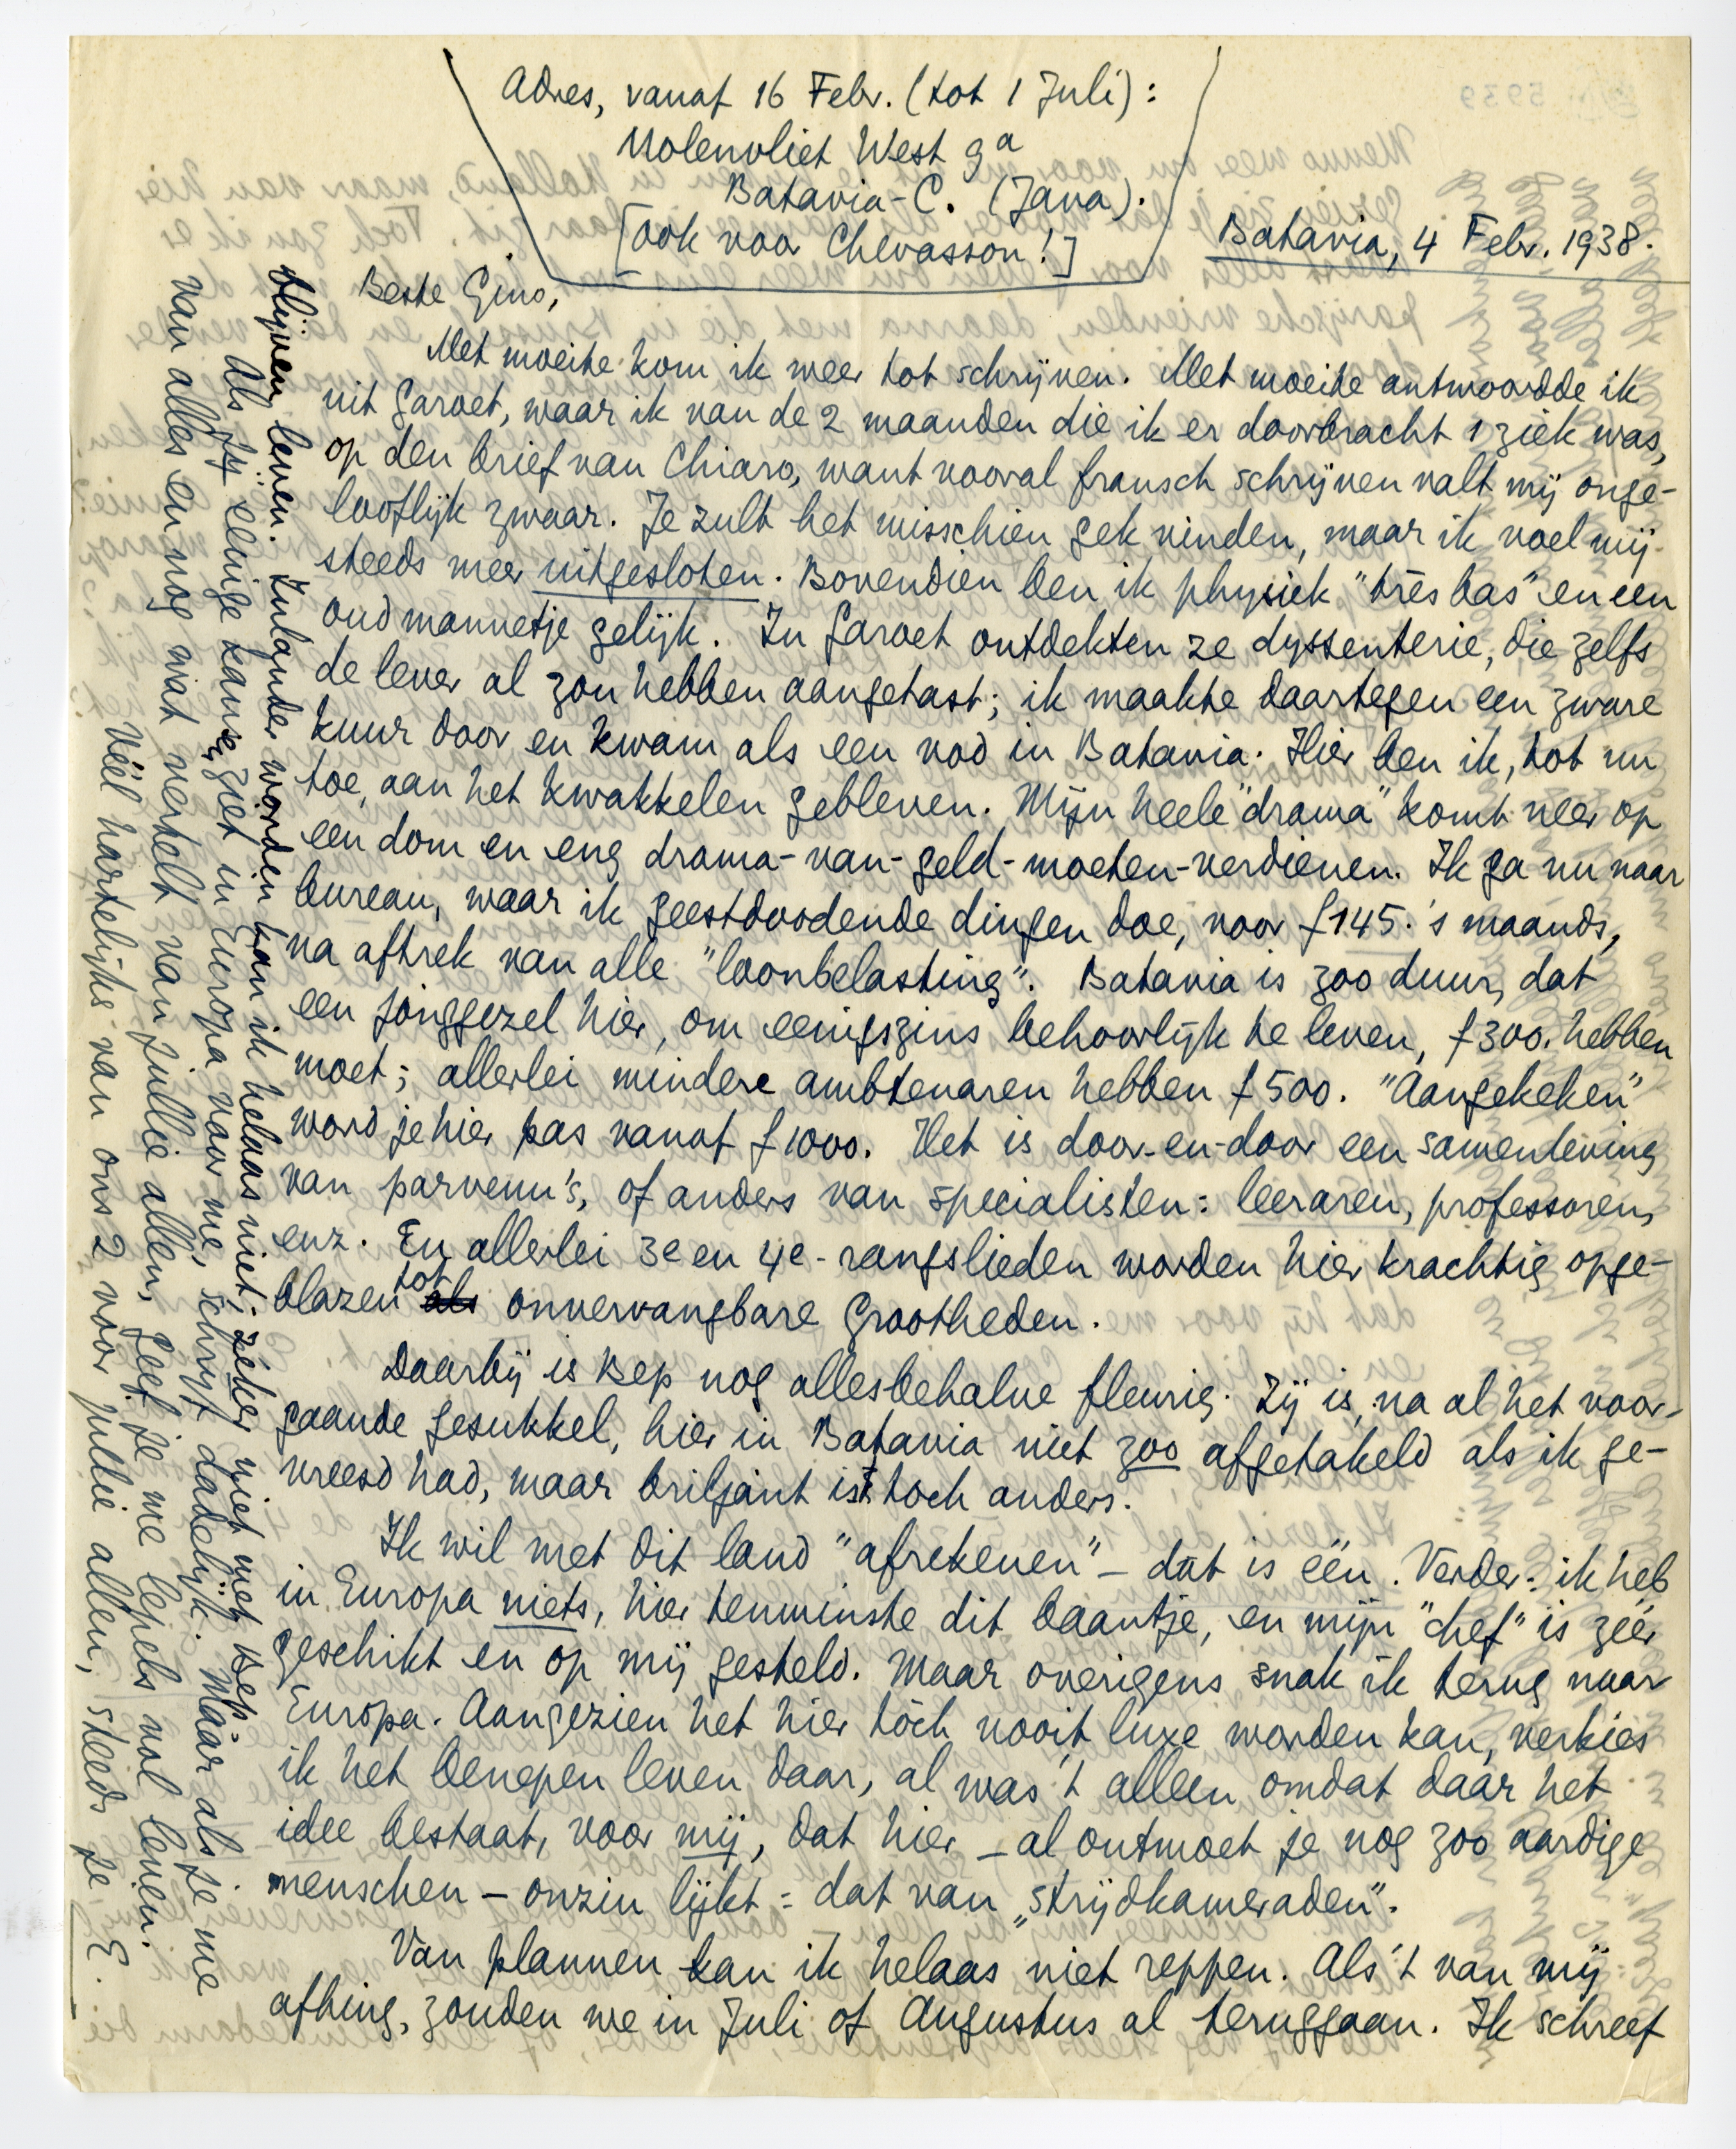 Adres, vanaf 16 Febr. (tot 1 Juli):
Molenvliet West 9a
Batavia-C. (Java).
[ook voor Chevasson!]
Batavia, 4 Febr. 1938.
Beste Gino,
Met moeite kom ik weer tot schrijven. Met moeite antwoordde ik
uit Garoet, waar ik van de 2 maanden die ik er doorbracht 1 ziek was,
op den brief van Chiaro, want vooral fransch schrijven valt mij onge-
looflijk zwaar. Je zult het misschien gek vinden, maar ik voel mij
steeds meer uitgesloten. Bovendien ben ik physiek "très bas" en een
oud mannetje gelijk. In Garoet ontdekten ze dyssenterie, die zelfs
de lever al zou hebben aangetast; ik maakte daartegen een zware
kuur door en kwam als een vod in Batavia. Hier ben ik, tot nu
toe, aan het kwakkelen gebleven. Mijn heele "drama" komt neer op
een dom en eng drama-van-geld-moeten-verdienen. Ik ga nu naar
bureau, waar ik geestdoodende dingen doe, voor f145.'s maands,
na aftrek van alle "loonbelasting". Batavia is zoo duur, dat
een jonggezel hier, om eenigszins behoorlijk te leven, f300. hebben
moet; allerlei mindere ambtenaren hebben f500. "Aangekeken"
word je hier pas vanaf f1000. Het is door-en-door een samenleving
van parvenu's, of anders van specialisten: leeraren, professoren,
enz. En allerlei 3e en 4e-rangslieden worden hier krachtig opge-
blazen tot als onvervangbare grootheden.
Daarbij is Bep nog allesbehalve fleurig. Zij is, na al het voor-
gaande gesukkel, hier in Batavia niet zoo afgetakeld als ik ge-
vreesd had, maar briljant is't toch anders.
Ik wil met dit land "afrekenen" – dat is één. Verder: ik heb
in Europa niets, hier tenminste dit baantje, en mijn "chef" is zéér
geschikt en op mij gesteld. Maar overigens snak ik terug naar
Europa. Aangezien het hier tòch nooit luxe worden kan, verkies
ik het benepen leven daar, al was 't alleen omdat dáár het
idee bestaat, voor mij, dat hier – al ontmoet je nog zoo aardige
menschen – onzin lijkt: dat van „strijdkameraden".
Van plannen kan ik helaas niet reppen. Als 't van mij
afhing, zouden we in Juli of Augustus al teruggaan. Ik schreef
blijven leven. Inlander worden kan ik helaas niet; zéker niet met Bep. Maar als je me
als jij eenige kans ziet in Europa voor me, schrijf dadelijk.
van alles en nog wat vertelt van jullie allen, geef je me lepels vol leven.
Véél hartelijks van ons 2 voor jullie allen, steeds je E.